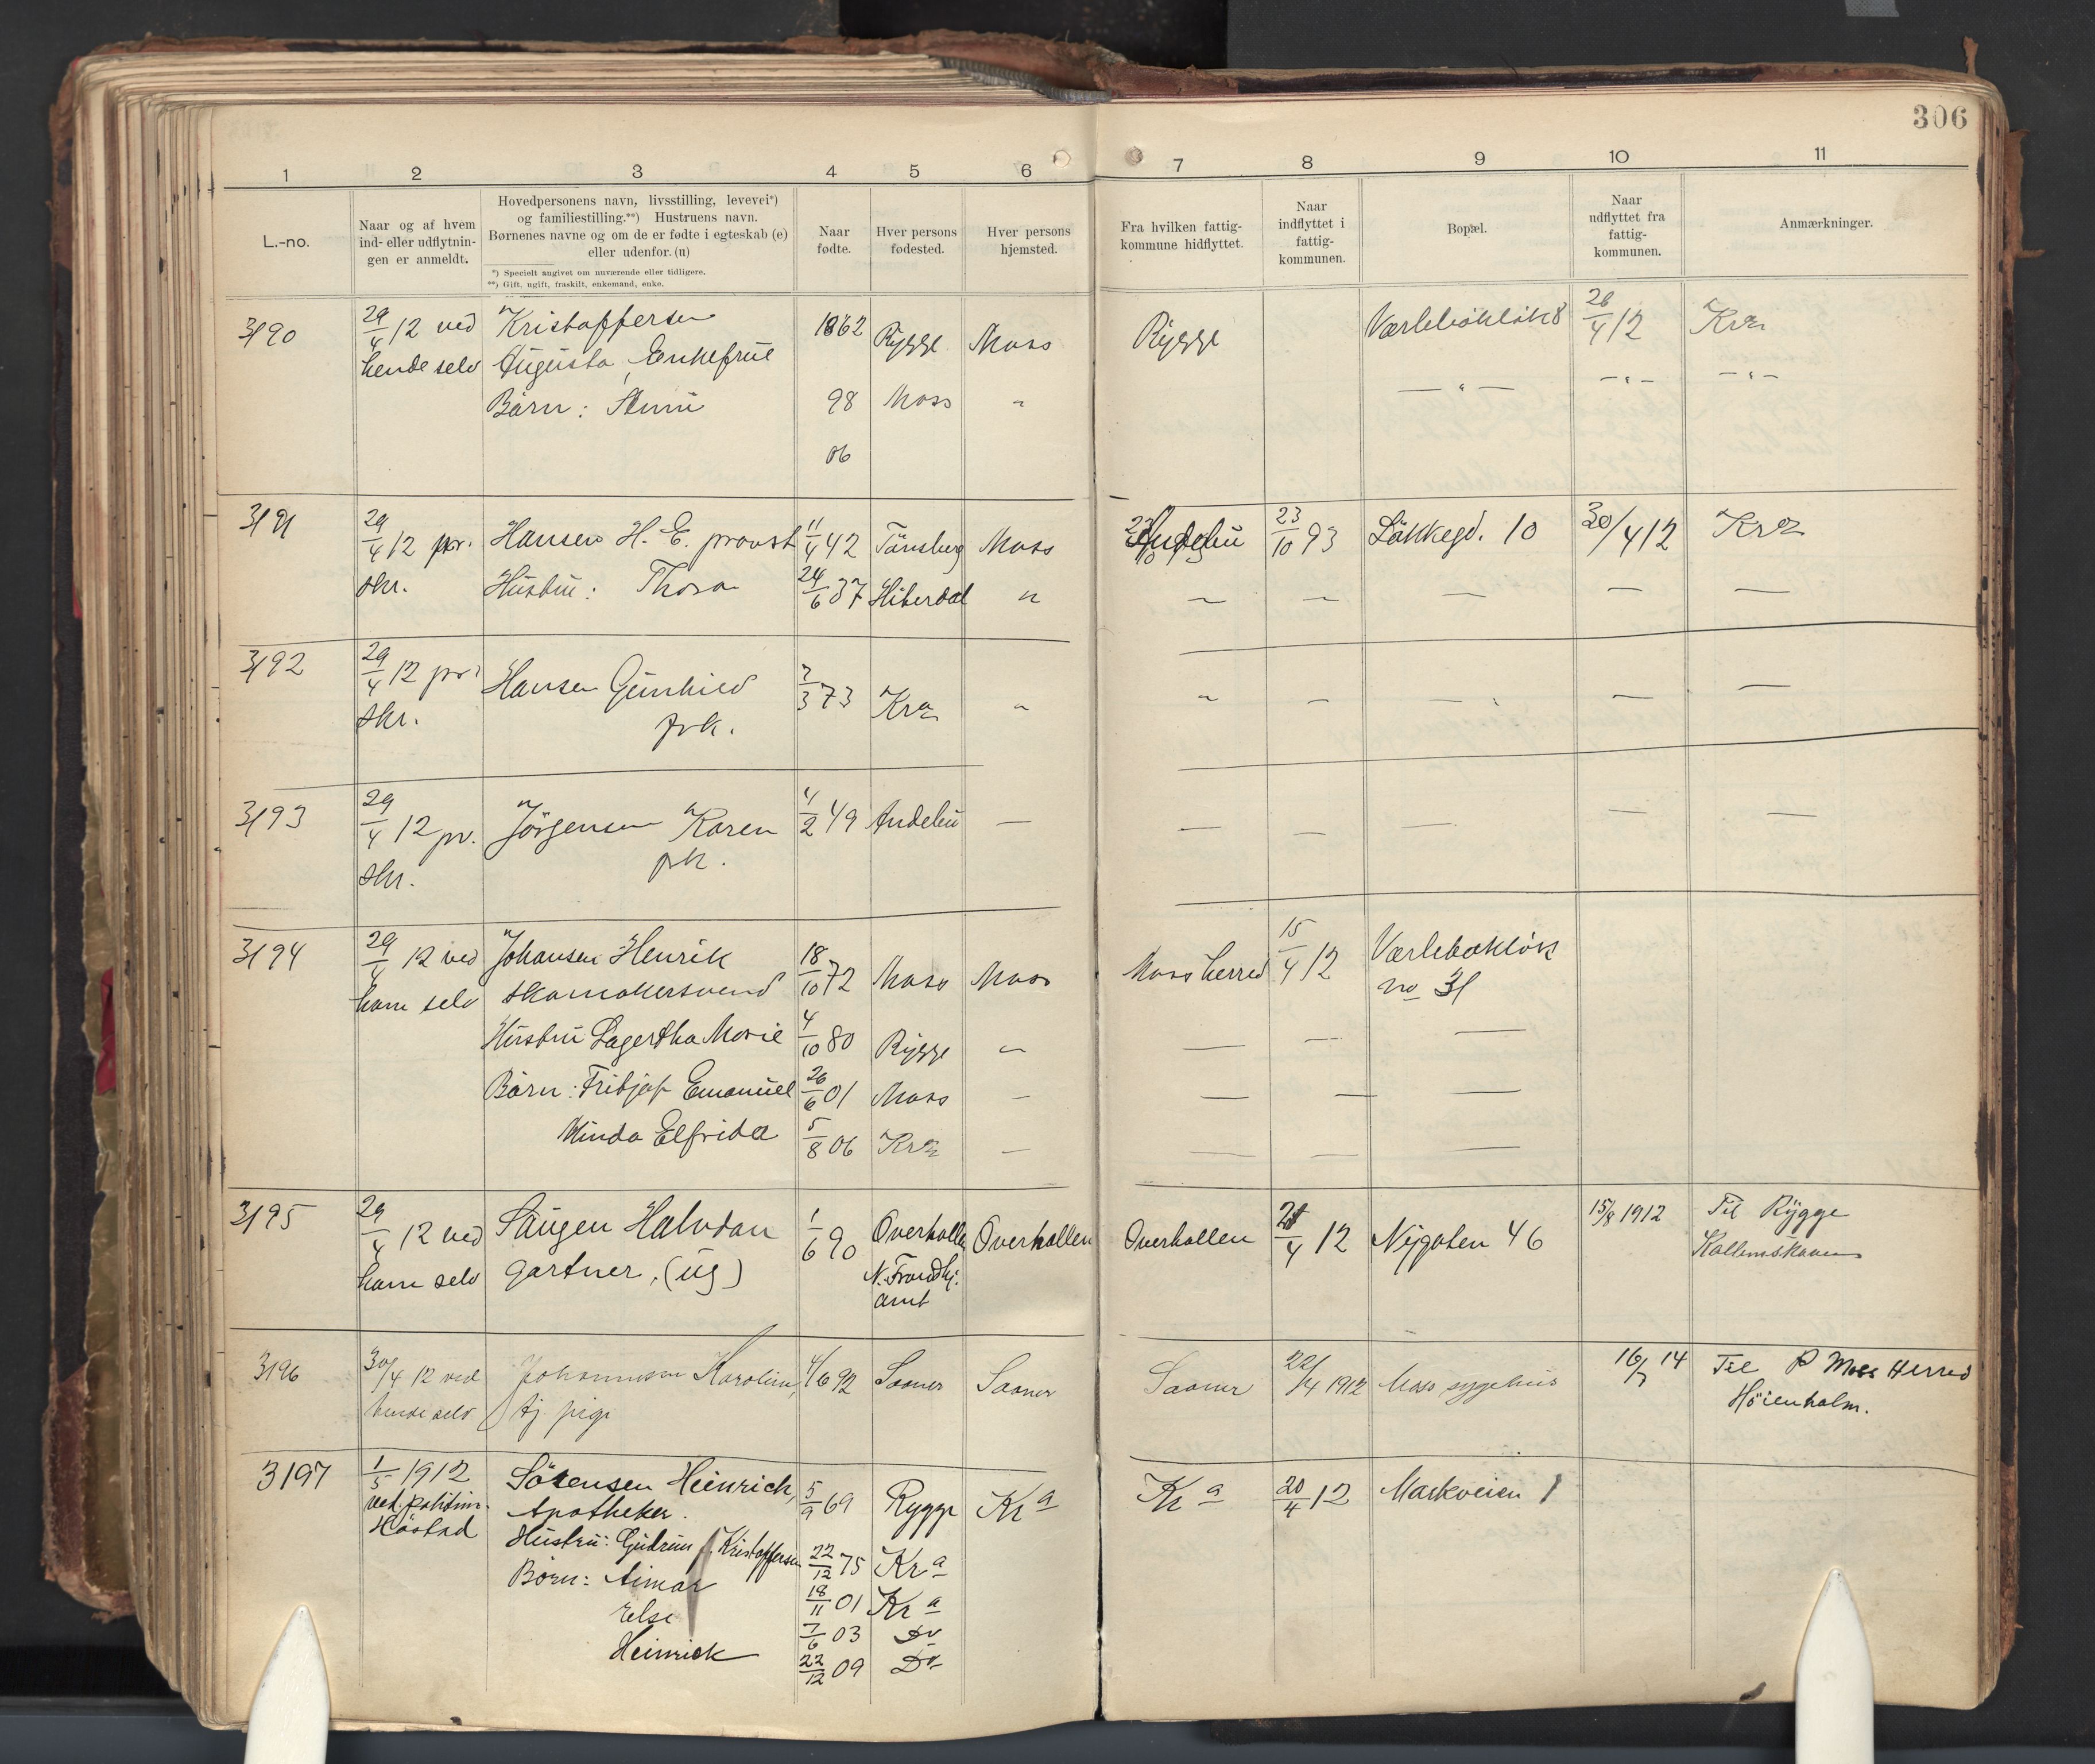 306
1 2 3 4 5 6 7 8 9 10 11
L.-no.
Naar og af hvem
ind- eller udflytnin-
gen er anmeldt.
Hovedpersonens navn, livsstilling, levevei*)
og familiestilling.**) Hustruens navn.
Børnenes navne og om de er fødte i egteskab (e)
eller udenfor. (u)
*) Specielt angivet om nuværende eller tidligere.
**) Gift, ugift, fraskilt, enkemand, enke.
Naar
fødte.
Hver persons
fødested.
Hver persons
hjemsted.
Fra hvilken fattig-
kommune hidflyttet.
Naar
indflyttet i
fattig-
kommunen.
Bopæl.
Naar
udflyttet fra
fattig-
kommunen.
Anmærkninger.
3190 29/4 12 ved Kristoffersen 1862 Rygge Moss Rygge 26/4 12 Kra
hende selv Augusta, Enkefrue — " — — " — — " —
Børn: 98 Moss "
06
3191 29/4 12 pr. Hansen H. E. provst 11/4 42 Tönsberg Moss Andebu 23/10 93 Lökkegd. 10 30/4 12 Kra
skr. Hustru: Thora 24/6 37 Hiterdal " — — — — —
3192 29/4 12 pr. Hansen Gunhild 7/3 73 Kra " " — — — —
skr. frk.
3193 29/4 12 pr. Jörgensen Karen 11/2 49 Andebu — — — — — —
skr. frk.
3194 29/4 12 ved Johansen Henrik 18/10 72 Moss Moss Moss herred 15/4 12 Værlebakløk
ham selv skomakersvend no 31
Hustru Lagertha Marie 4/10 80 Rygge — — — —
Børn: Fritjof Emanuel 26/6 01 Moss — — — —
Minda Elfrida 5/8 06 Kra — — — —
3195 29/4 12 ved Saugen Halvdan 1/6 90 Overhallen Overhallen Overhallen /4 12 Nygaten 46 15/8 1912 Til Rygge
ham selv gartner, (ug) N. Trondhj.
amt
3196 30/4 12 ved Johannesen Karoline, 4/6 92 Saaner Saaner Saaner 22/4 1912 Moss sygehus 16/7 14 Til Moss Herred
hende selv tj. pige Höienholm.
3197 1/5 1912 Sörensen Heinrich, 5/9 69 Rygge Kra Kra 20/4 12 Markveien 1
ved politim. Apotheker.
Höstad Hustru: Gudrun f. Kristoffersen 22/12 75 Kra
Børn: Aimar 18/11 01 Kra
Else 7/6 03 Do
Heinrick 22/12 09 Do